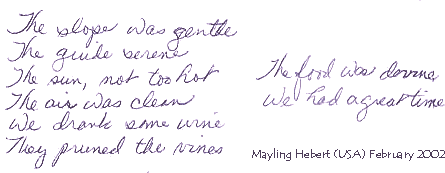 The slope was gentle
The guide serene
The sun, not too hot
The air was clean
We drank some wine
They pruned the vines
The food was devine
We had a great time
Mayling Hebert (USA) February 2002